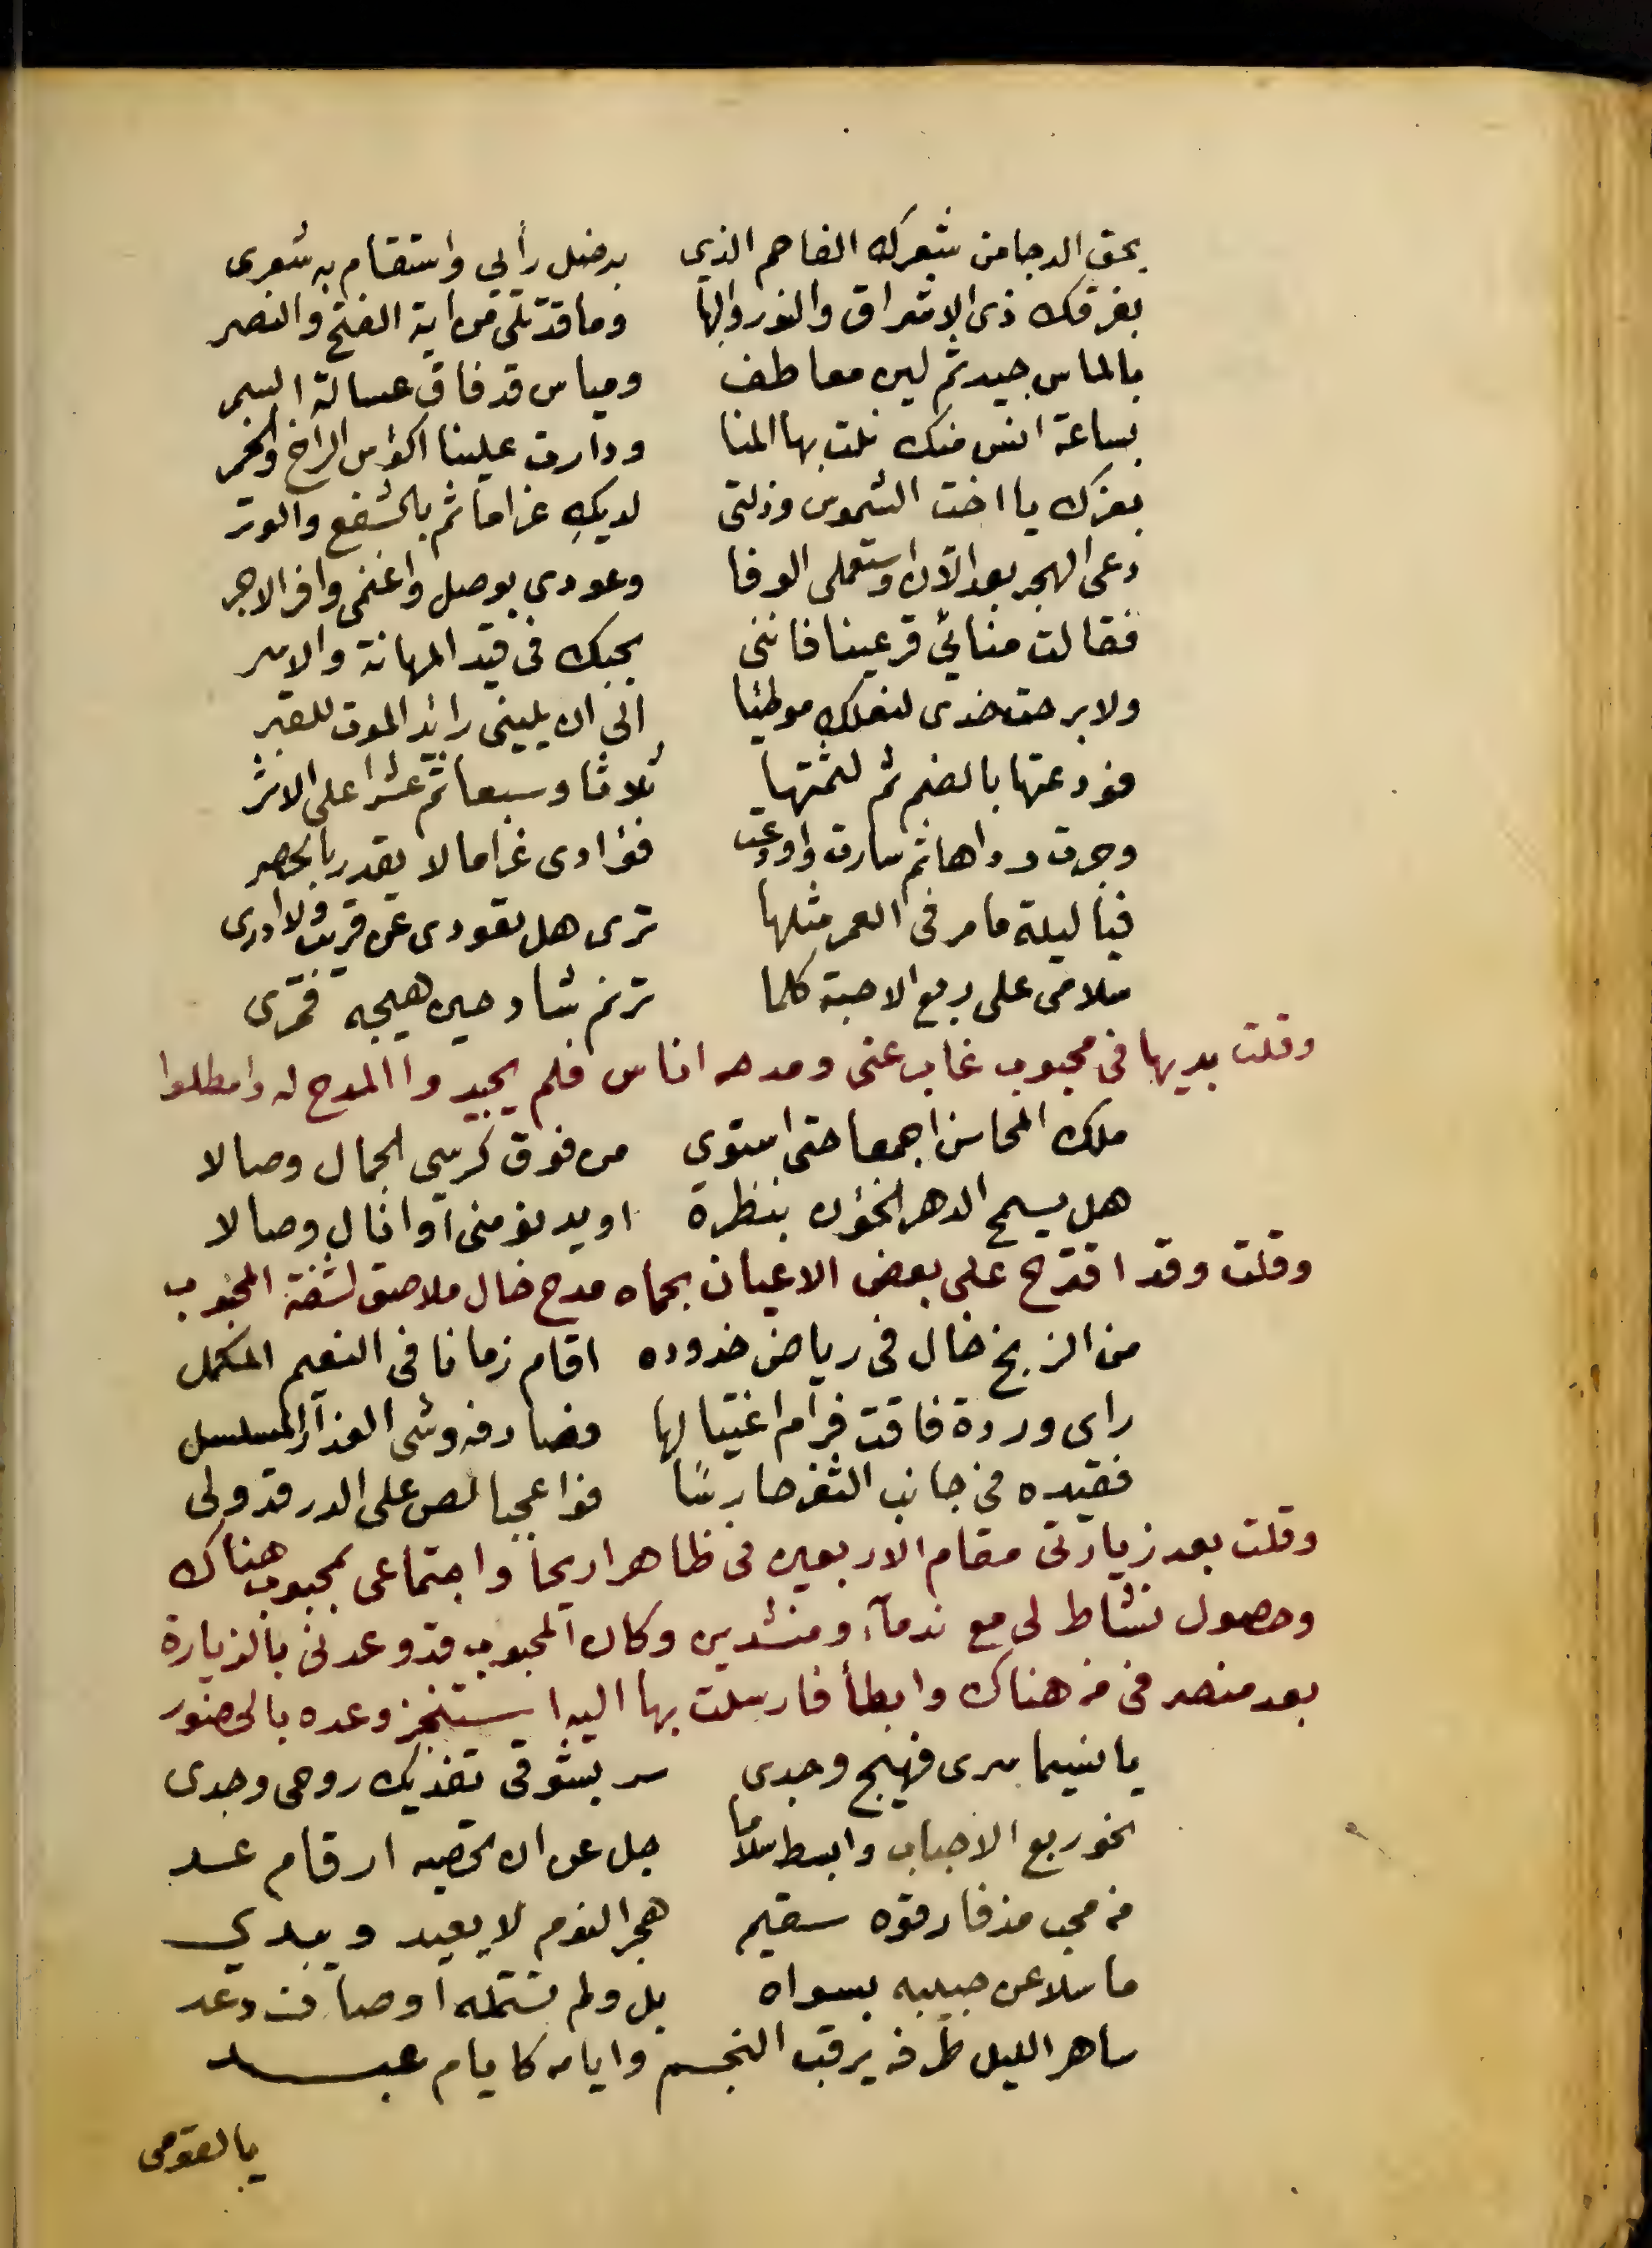 بحق الدجا من شعرك الفاحم الذي به ضل رأيي واستقام به شعرى
بفرقك ذى الاشراق والنور والبها وما قد تلى من اية الفتح والنصر
بالماس جيد ثم لين معاطف ومياس قد فاق عسالة السمر
بساعة انس منك نلت بها المنا ودارت علينا اكؤس الراح والخمر
بعزك يا اخت الشموس وذلتى لديكِ غراما ثم بالشفع والوتر
دعى الهجر بعد الآن واستعملى الوفا وعودى بوصل واغنمى وافر الاجر
فقالت منائي قر عينا فاننى بحبك فى قيد المهانة والاسر
ولا برحت خدى لنعلك موطئا الى ان يلينى رائد الموت للقبر
فودعتها بالضم ثم لثمتها ثلاثا وسبعا ثم عشرا على الاثر
وجرت رداها ثم سارت واودعت فؤادى غراما لا يقدر بالحصر
فيا ليلة ما مر فى العمر مثلها ترى هل تعودى عن قريب ولا ادرى
سلامى على ربع الاحبة كلما ترنم شاد حين هيجه قمرى
وقلت بديها فى محبوب غاب عنى ومدحه اناس فلم يجيدوا المدح له وامطلوا
ملك المحاسن اجمعا حتى استوى من فوق كرسي الجمال وصالا
هل يسمح الدهر الخؤن بنظرة او يدنو منى اوانال وصالا
وقلت وقد اقترح على بعض الاعيان بحماه مدح خال ملاصق لشفة المحبوب
من الزنج خال فى رياض خدوده اقام زمانا فى النعيم المكمل
راى وردة فاقت فرام اغتيالها فصادفه وشى العذار المسلسل
فقيده فى جانب الثغر حارسًا فواعجبا لص على الدر قد ولى
وقلت بعد زيارتى مقام الاربعين فى ظاهر اريحا واجتماعى بمحبوب هناك
وحصول نشاط لى مع ندمآء ومنشدين وكان المحبوب قد وعدنى بالزيارة
بعد منصرفى من هناك وابطأ فارسلت بها اليه استنجز وعده بالحضور
يا نسيما سرى فهيج وجدى سر بشوقى تفديك روحى وجدى
نحو ربع الاحباب وابسط سلاما جل عن ان تحصيه ارقام عد
من محب مذ فارقوه سقيم هجر النوم لا يعيد ويبدي
ما سلا عن حبيبه بسواه بل ولم تشمله اوصاف دعد
ساهر الليل طرفه يرقب النجم وايامه كايام عبد
يالقومى